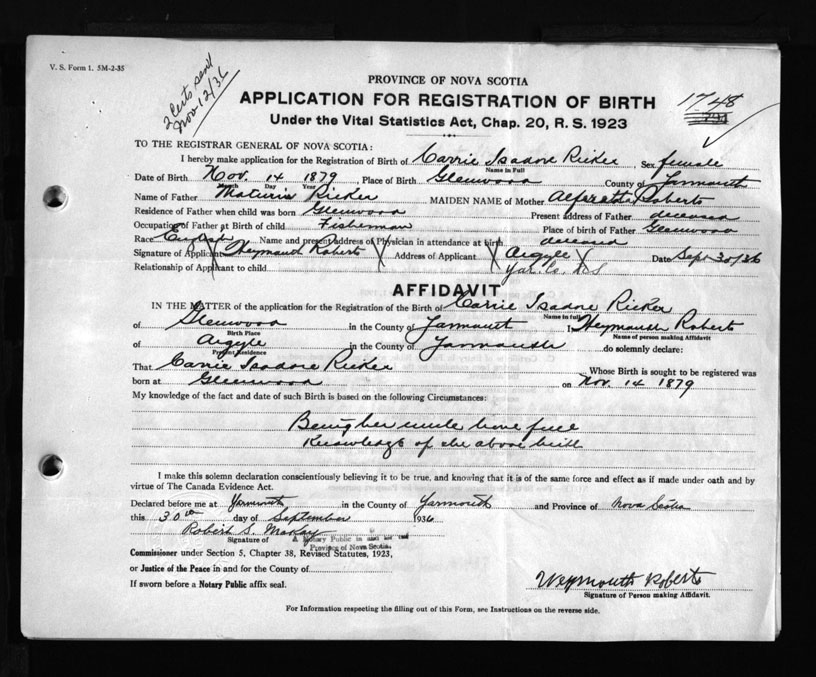 V. S. Form 1. 5M-2-35
2 Certs send
Nov 12/36
PROVINCE OF NOVA SCOTIA
APPLICATION FOR REGISTRATION OF BIRTH
1748
Under the Vital Statistics Act, Chap. 20, R. S. 1923
TO THE REGISTRAR GENERAL OF NOVA SCOTIA:
I hereby make application for the Registration of Birth of Carrie Isadore Ricker Sex female
Name in Full
Date of Birth Nov. 14 1879 Place of Birth Glenwood County of Yarmouth
Month Day Year
Name of Father Maturin Ricker MAIDEN NAME of Mother Alfaretta Roberts
Residence of Father when child was born Glenwood Present address of Father deceased
Occupation of Father at Birth of child Fisherman Place of birth of Father Glenwood
Race English Name and present address of Physician in attendance at birth deceased
Signature of Applicant Weymouth Roberts Address of Applicant Argyle Date Sept 30/36
Relationship of Applicant to child Yar. Co. N S
AFFIDAVIT
IN THE MATTER of the application for the Registration of the Birth of Carrie Isadore Ricker
Name in full
of Glenwood in the County of Yarmouth I Weymouth Roberts
Birth Place Name of person making Affidavit
of Argyle in the County of Yarmouth do solemnly declare:
Present Residence
That Carrie Isadore Ricker Whose Birth is sought to be registered was
born at Glenwood on Nov. 14 1879
My knowledge of the fact and date of such Birth is based on the following Circumstances:
Being her uncle have full
Knowledge of the above birth
I make this solemn declaration conscientiously believing it to be true, and knowing that it is of the same force and effect as if made under oath and by
virtue of The Canada Evidence Act.
Declared before me at Yarmouth in the County of Yarmouth and Province of Nova Scotia
this 30th day of September 1936
Robert S. MacKay
Signature of A Notary Public in and for the
Province of Nova Scotia
Commissioner under Section 5, Chapter 38, Revised Statutes, 1923,
or Justice of the Peace in and for the County of
If sworn before a Notary Public affix seal.
Weymouth Roberts
Signature of Person making Affidavit.
For Information respecting the filling out of this Form, see Instructions on the reverse side.